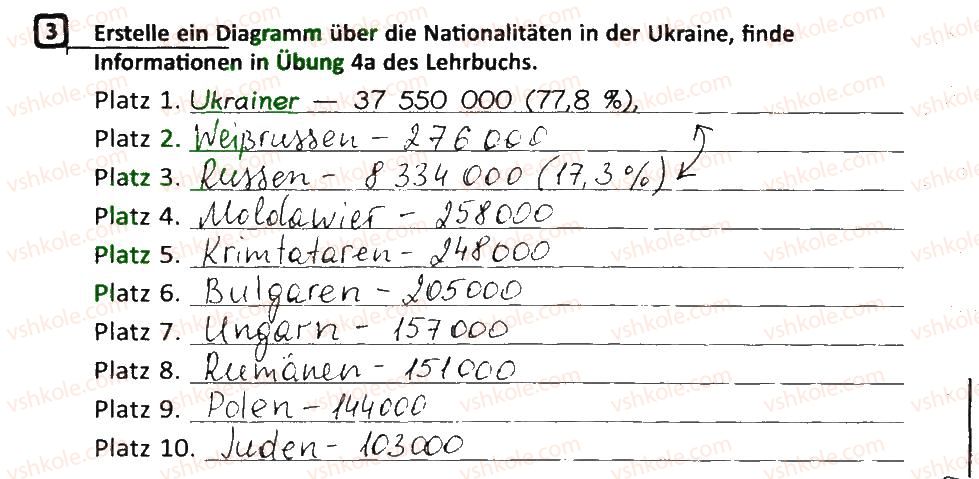 3 Erstelle ein Diagramm über die Nationalitäten in der Ukraine, finde
Informationen in Übung 4a des Lehrbuchs.
Platz 1. Ukrainer – 37 550 000 (77,8 %),
Platz 2. Weißrussen – 276 000
Platz 3. Russen – 8 334 000 (17,3%)
Platz 4. Moldawier – 258000
Platz 5. Krimtataren – 248000
Platz 6. Bulgaren – 205000
Platz 7. Ungarn – 157000
Platz 8. Rumänen – 151000
Platz 9. Polen – 144000
Platz 10. Juden – 103000
vshkole.com